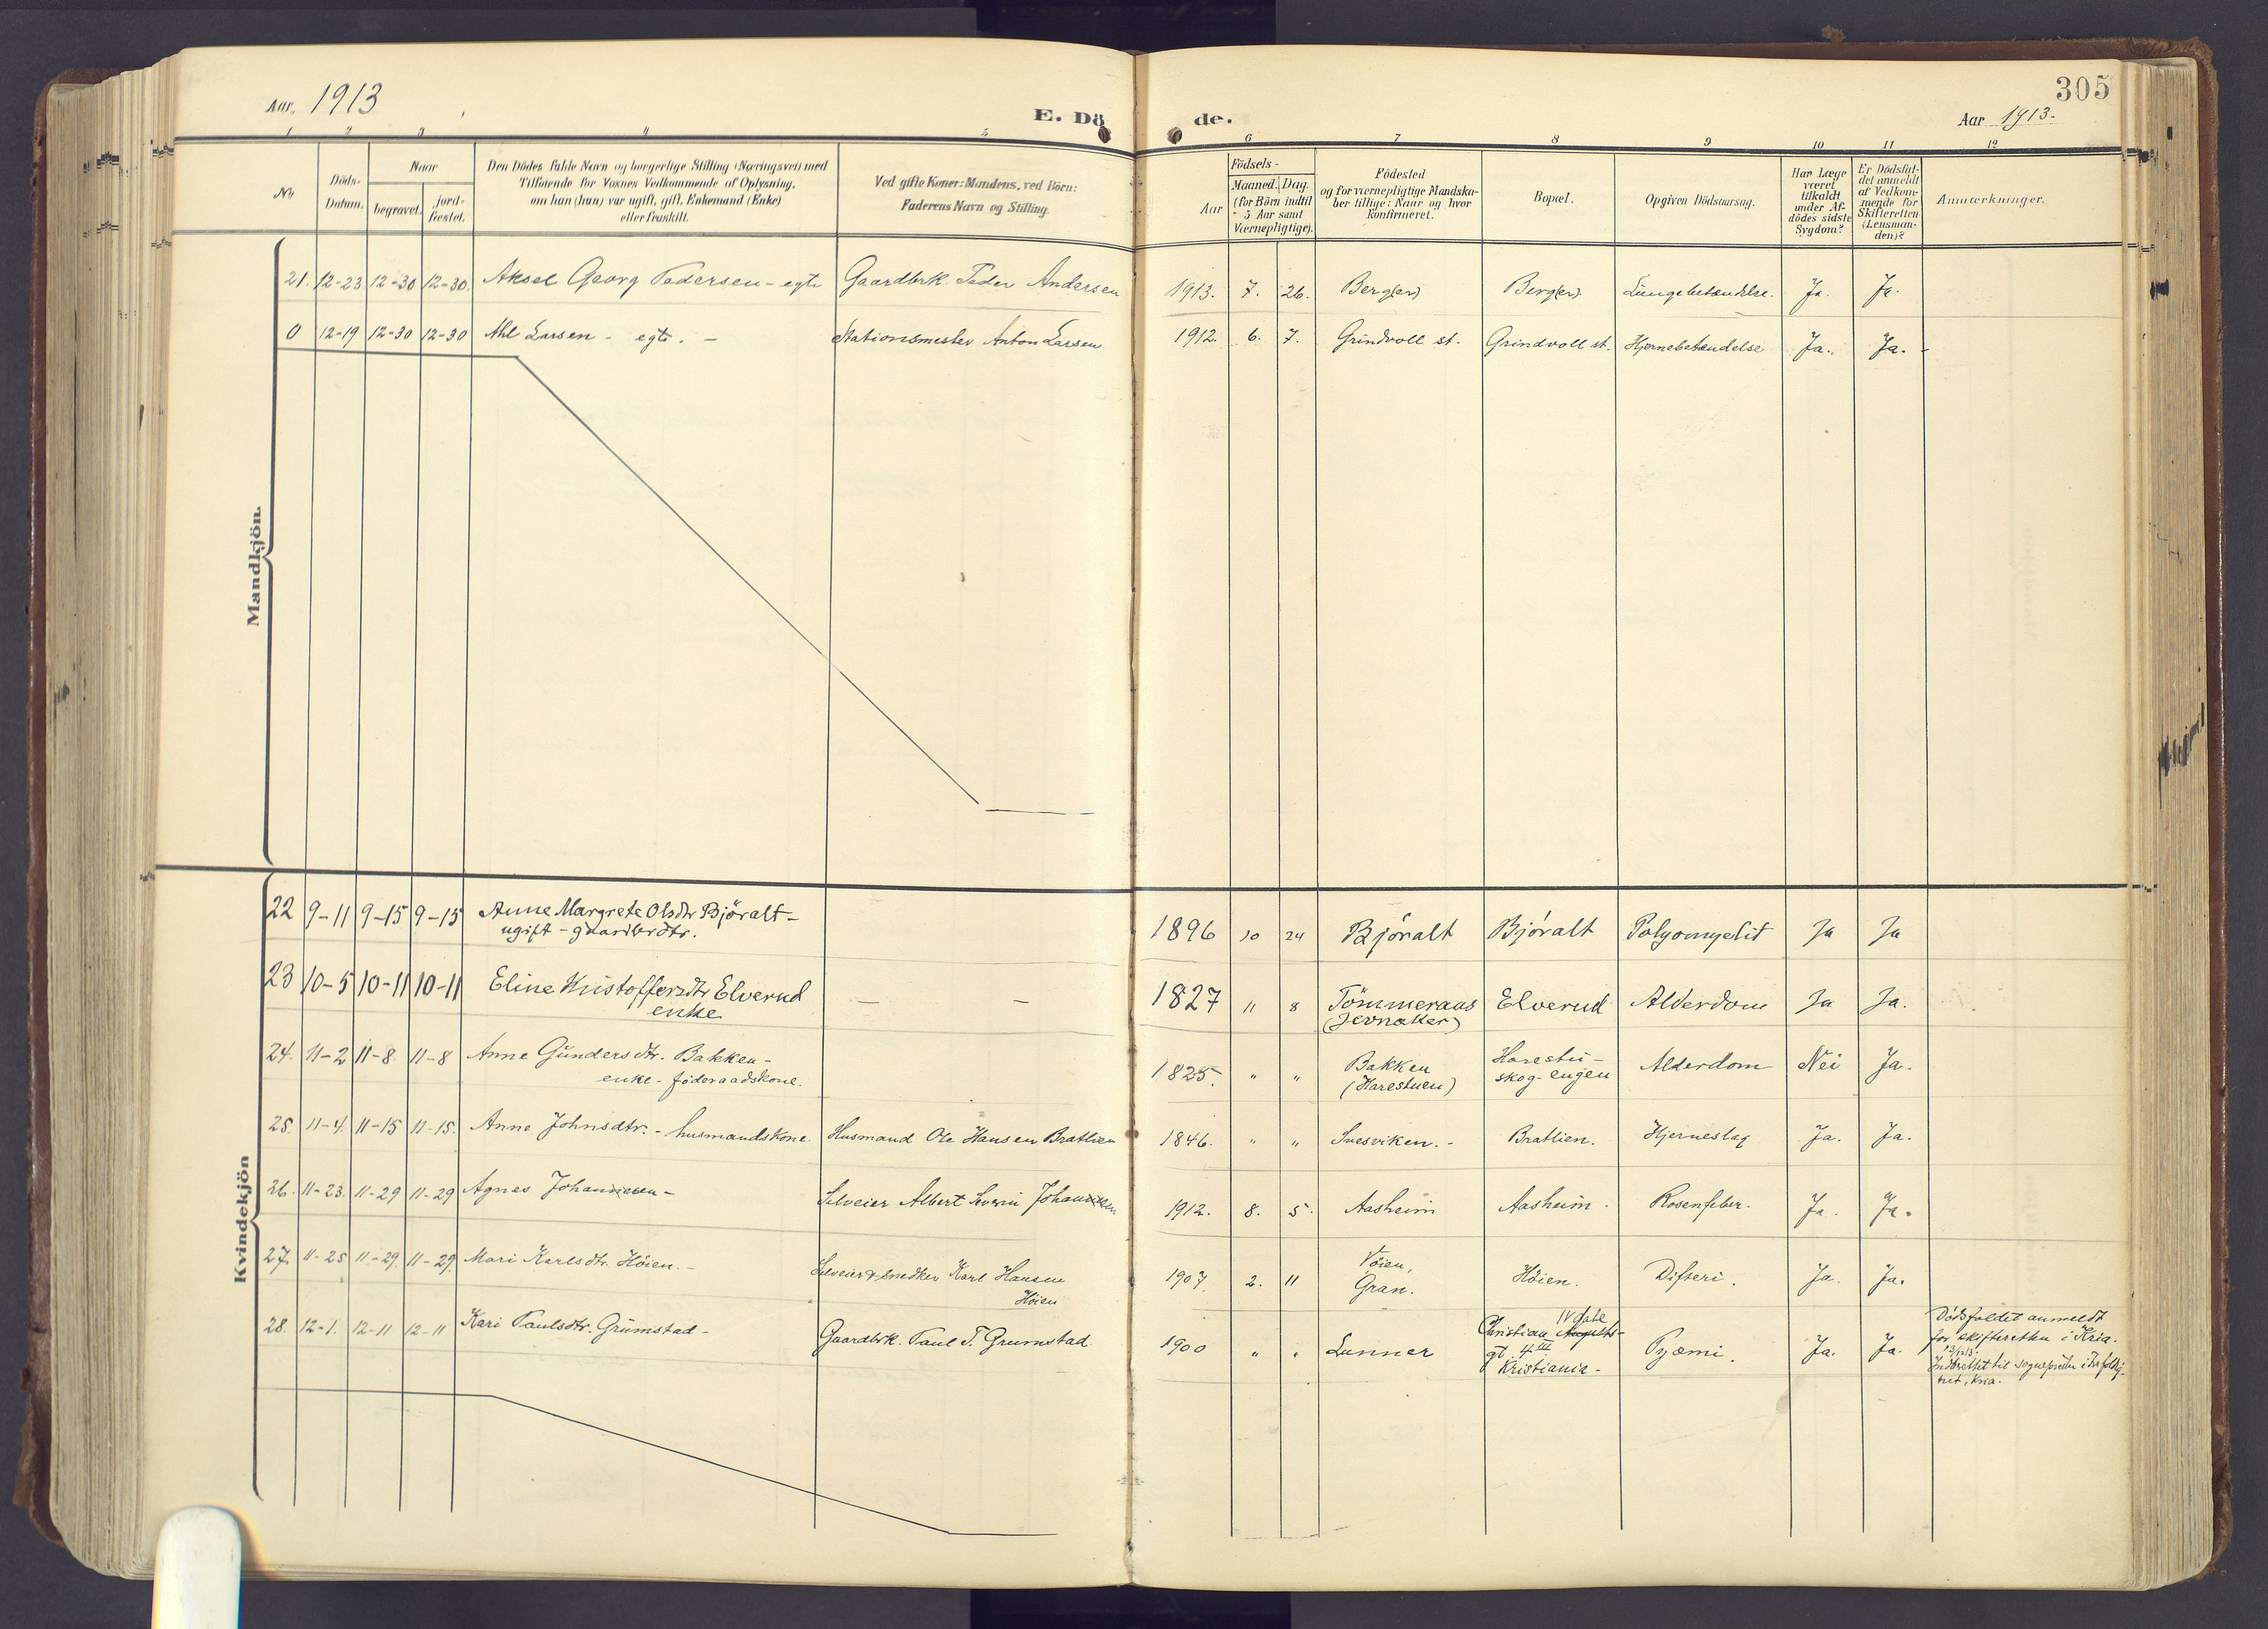 Aar. 1913
E. Dö
de.
Aar 1913.
305
1 2 3 4 5 6 7 8 9 10 11 12
No
Döds-
Datum.
Naar
begravet.
jord-
fæstet.
Den Dödes fulde Navn og borgerlige Stilling (Næringsvei) med
Tilföiende for Voxnes Vedkommende af Oplysning,
om han (hun) var ugift, gift, Enkemand (Enke)
eller fraskilt.
Ved gifte Koner: Mandens, ved Börn:
Faderens Navn og Stilling.
Födsels-
Aar
Maaned. Dag.
(for Börn indtil
5 Aar samt
Værnepligtige).
Födested
og for værnepligtige Mandska-
ber tillige: Naar og hvor
konfirmeret.
Bopæl.
Opgiven Dödsaarsag.
Har Læge
været
tilkaldt
under Af-
dödes sidste
Sygdom?
Er Dödsfal-
det anmeldt
af Vedkom-
mende for
Skifteretten
(Lensman-
den)?
Anmærkninger.
Mandkjön.
21. 12-23 12-30 12-30. Aksel Georg Pedersen - egte Gaardbrk. Peder Andersen 1913. 7. 26. Berg(er) Berg(er). Lungebetændelse. Ja. Ja.
0 12-19 12-30 12-30 Ahl Larsen - egte. - Stationsmester Anton Larsen 1912. 6. 7. Grindvoll st. Grindvoll st. Hjernebetændelse Ja. Ja. -
Kvindekjön
22 9-11 9-15 9-15 Anne Margrete Olsdtr Björalt - 1896 10 24 Björalt Björalt Polyomyelit Ja Ja
ugift - gaardbrdtr.
23 10-5 10-11 10-11 Eline Kristoffersdtr Elverud — — 1827 11 8 Tömmeraas Elverud Alderdom Ja Ja.
enke (Jevnaker)
24. 11-2 11-8 11-8 Anne Gundersdtr. Bakken - 1825. " " Bakken Harestu- Alderdom Nei Ja.
enke - föderaadskone. (Harestuen) skog-engen
25. 11-4. 11-15 11-15. Anne Johnsdtr. - husmandskone. Husmand Ole Hansen Bratlien 1846. " " Svesviken. - Bratlien. Hjerneslag Ja. Ja.
26. 11-23. 11-29 11-29 Agnes Johannesen - Selveier Albert Severin Johannesen 1912. 8. 5. Aasheim Aasheim. Rosenfeber. Ja. Ja.
27. 11-25 11-29. 11-29. Mari Karlsdtr. Höien. - Selveier & snedker Karl Hansen 1907. 2. 11 Vöien, Höien. Difteri. Ja. Ja.
Höien Gran.
28. 12-1. 12-11 12-11 Kari Paulsdtr. Grumstad - Gaardbrk. Paul T. Grumstad 1900 " " Lunner Christian Augusts- IV gate Pyæmi. Ja. Ja.
gt. 4 III
Kristiania -
Dödsfaldet anmeldt
for skifteretten i Kria.
Indberettet til sognepresten i
Kria.